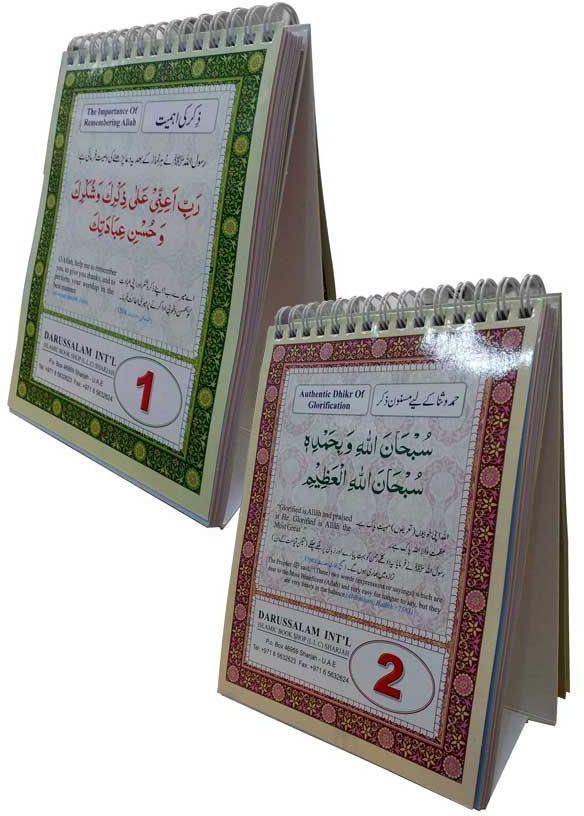 The Importance Of
Remembering Allah
ذکر کی اہمیت
رسول اللہ ﷺ نے ہر نماز کے بعد یہ دعا پڑھنے کی
رَبِّ اَعِنِّیْ عَلٰی ذِکْرِكَ وَشُکْرِكَ
وَحُسْنِ عِبَادَتِكَ
O Allah, help me to remember
you, to give you thanks, and to
perform your worship in the
best manner.
DARUSSALAM INT'L
ISLAMIC BOOK SHOP (L.L.C) SHARJAH
P.o. Box 46959 Sharjah - U.A.E
Tel: +971 6 5632623 Fax: +971 6 5632624
1
Authentic Dhikr Of
Glorification
حمد وثنا کے لیے مسنون ذکر
سُبْحَانَ اللهِ وَبِحَمْدِهٖ
سُبْحَانَ اللهِ الْعَظِیْمِ
"Glorified is Allâh and praised
is He, Glorified is Allâh the
Most Great".
The Prophet ﷺ said," (There) two words (expressions or sayings) which are
dear to the Most Beneficent (Allah) and very easy for tongue to say, but they
are very heavy in the balance.
DARUSSALAM INT'L
ISLAMIC BOOK SHOP (L.L.C) SHARJAH
P.o. Box 46959 Sharjah - U.A.E
Tel: +971 6 5632623 Fax: +971 6 5632624
2